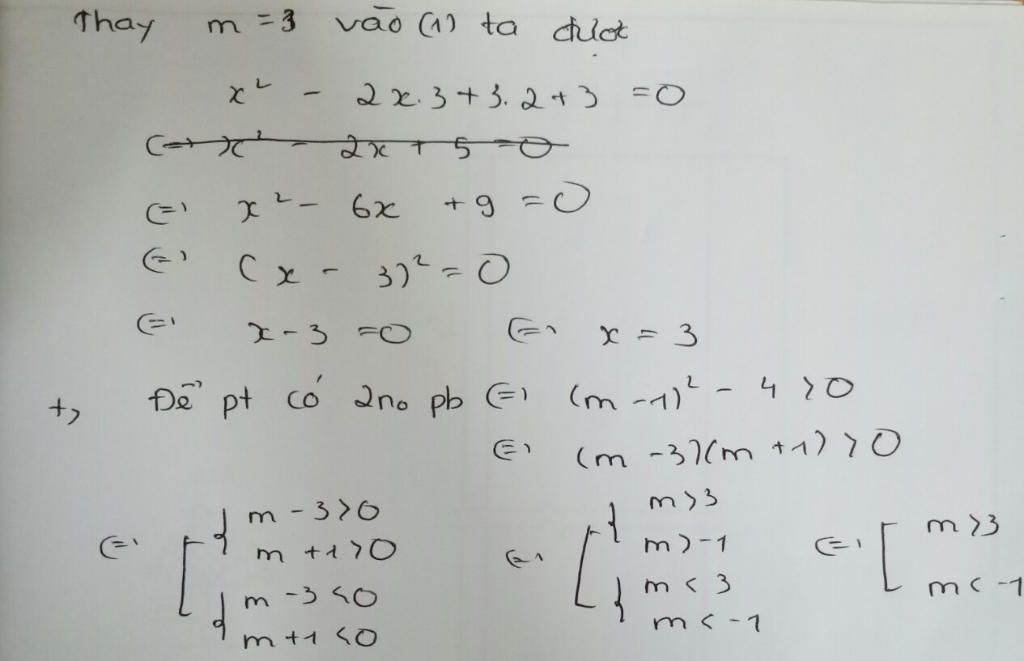 Thay m = 3 vào (1) ta được
x² - 2x.3 + 3.2 + 3 = 0
<=> x² - 2x + 5 = 0
<=> x² - 6x + 9 = 0
<=> (x - 3)² = 0
<=> x - 3 = 0 <=> x = 3
+, Để pt có 2no pb <=> (m - 1)² - 4 > 0
<=> (m - 3)(m + 1) > 0
<=> [ { m - 3 > 0 <=> [ { m > 3 <=> [ m > 3
m + 1 > 0 m > -1
{ m - 3 < 0 { m < 3 m < -1
m + 1 < 0 m < -1